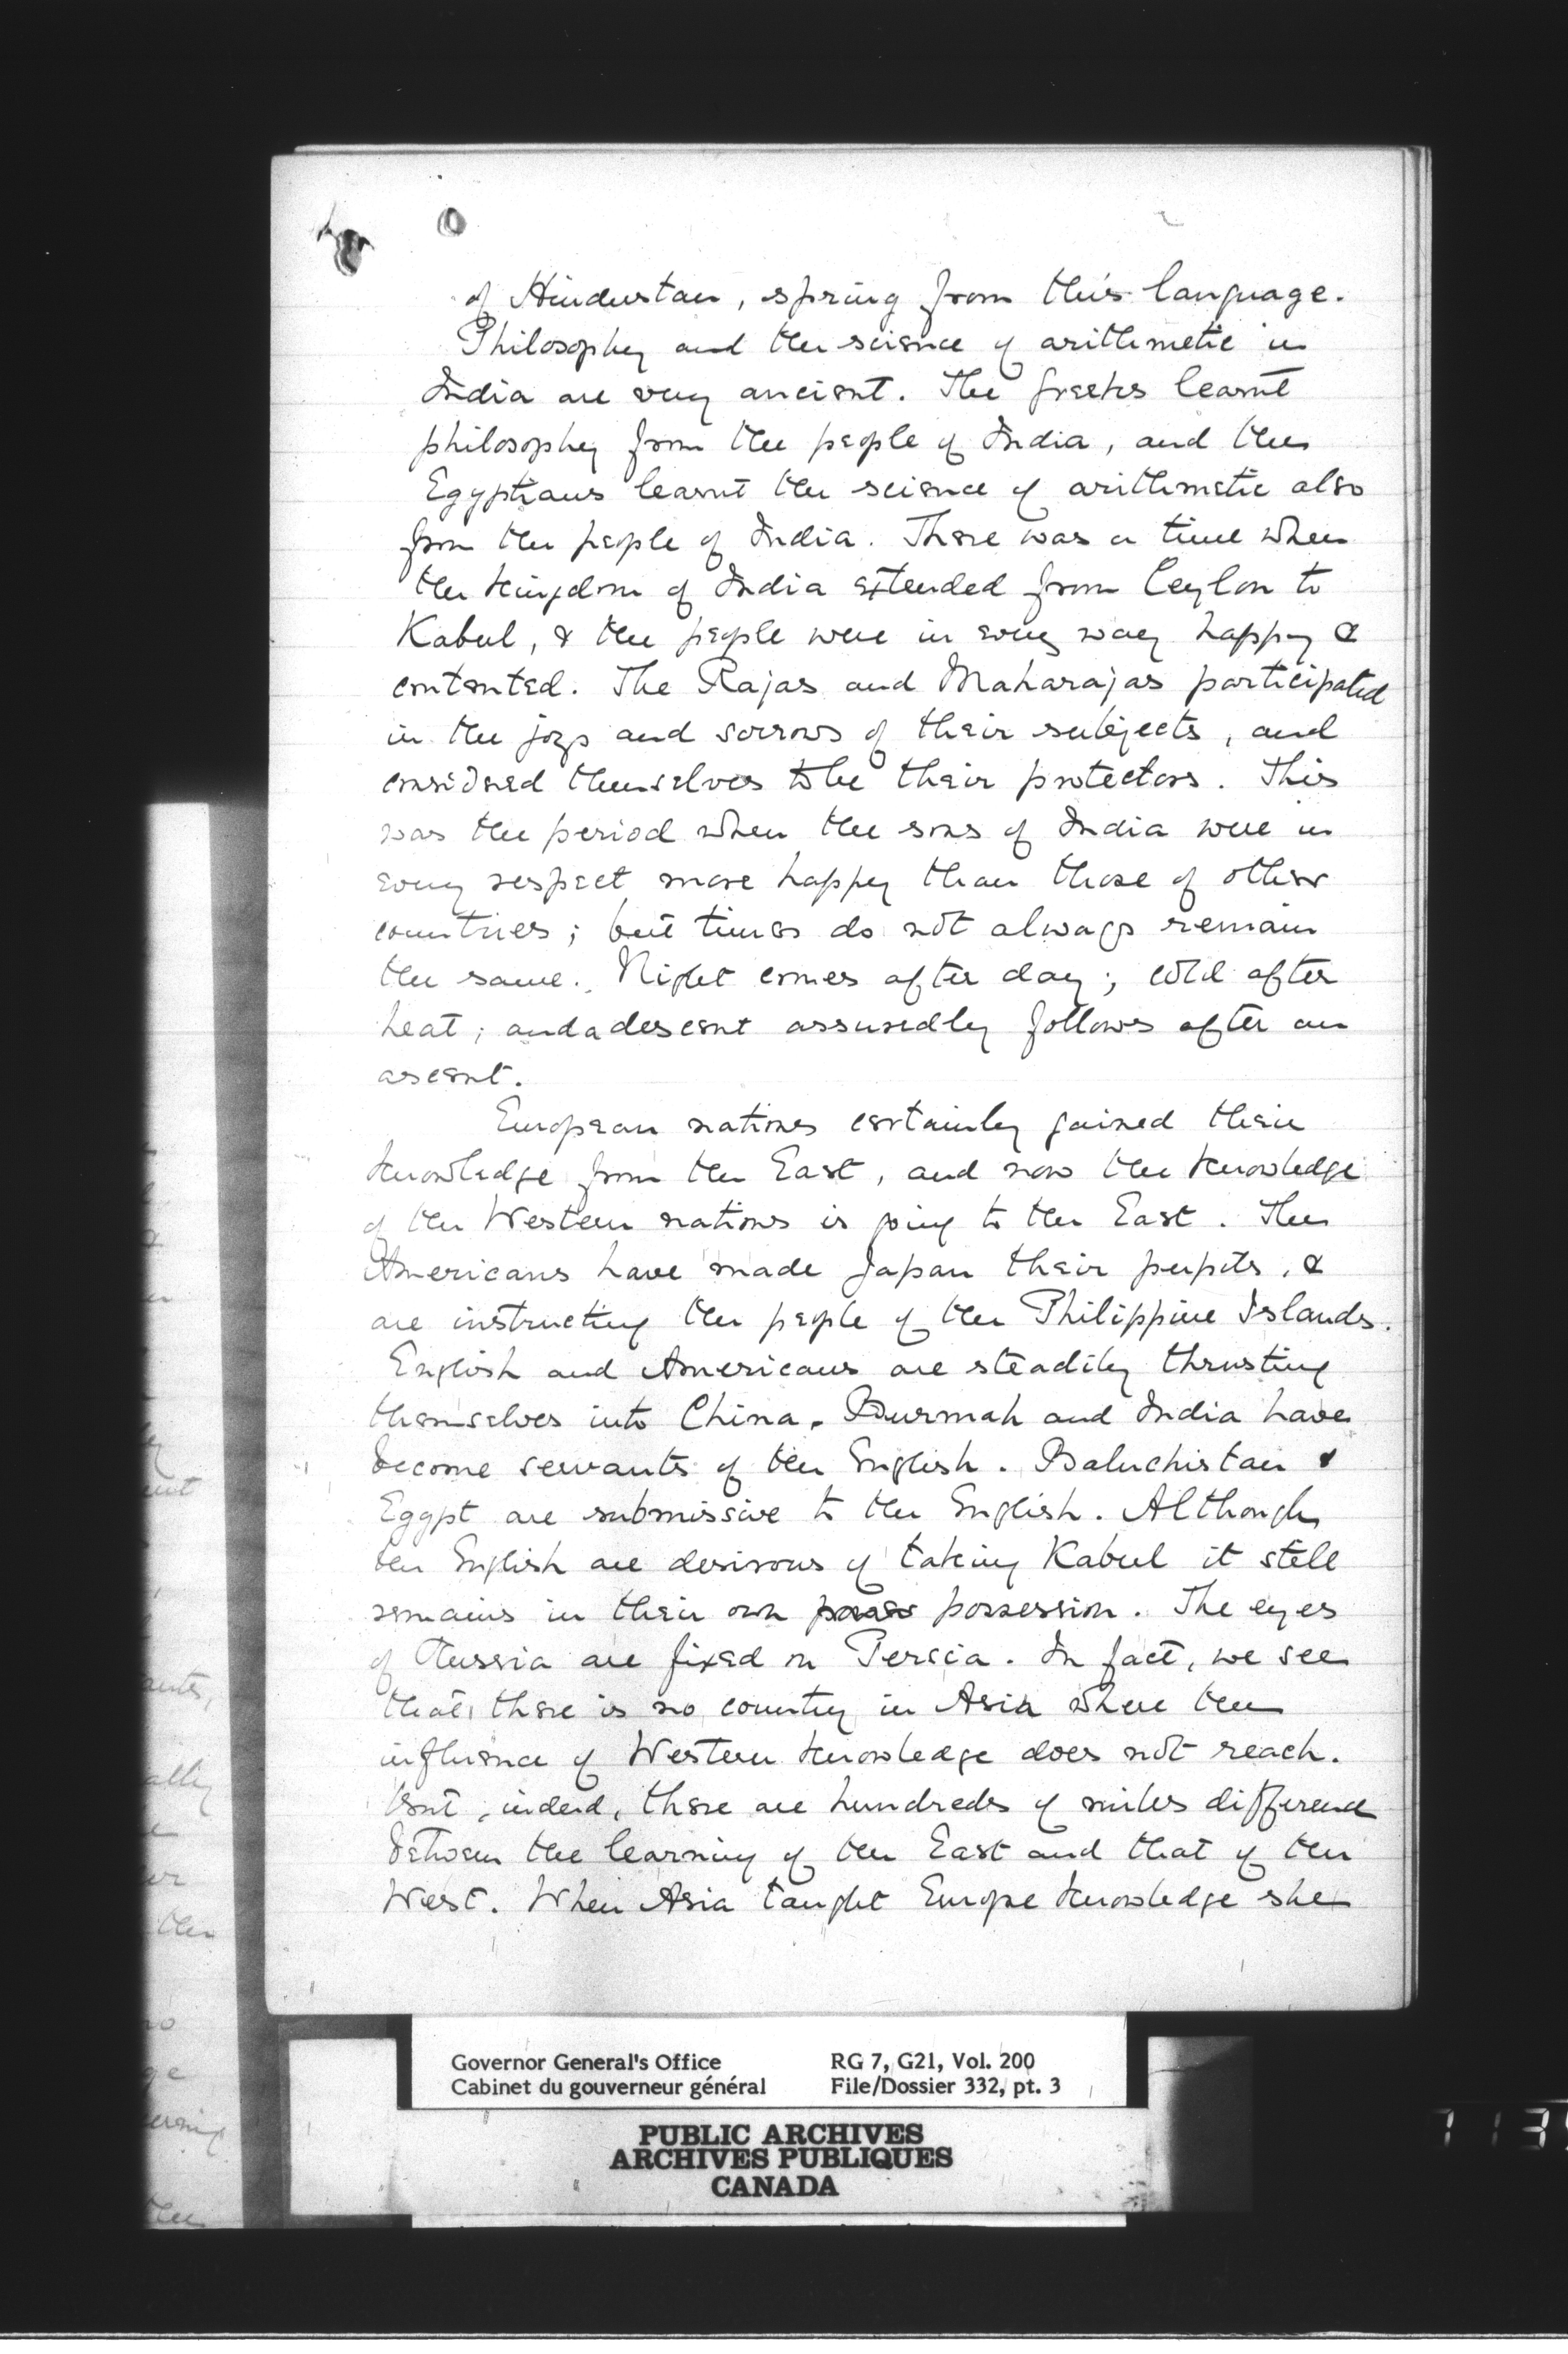 of Hindustan, spring from this language.
Philosophy and the science of arithmetic in
India are very ancient. The Greeks learnt
philosophy from the people of India, and the
Egyptians learnt the science of arithmetic also
from the people of India. There was a time when
the kingdom of India extended from Ceylon to
Kabul, & the people were in every way happy &
contented. The Rajas and Maharajas participated
in the joys and sorrows of their subjects, and
considered themselves to be their protectors. This
was the period when the sons of India were in
every respect more happy than those of other
countries; but times do not always remain
the same. Night comes after day; cold after
heat; and a descent assuredly follows after an
ascent.
European nations certainly gained their
knowledge from the East, and now the knowledge
of the Western nations is going to the East. The
Americans have made Japan their pupils, &
are instructing the people of the Philippine Islands.
English and Americans are steadily thrusting
themselves into China. Burmah and India have
become servants of the English. Baluchistan &
Egypt are submissive to the English. Although
the English are desirous of taking Kabul it still
remains in their own possession. The eyes
of Russia are fixed on Persia. In fact, we see
that there is no country in Asia where the
influence of Western knowledge does not reach.
But, indeed, there are hundreds of miles difference
between the learning of the East and that of the
West. When Asia taught Europe knowledge she
Governor General's Office
Cabinet du gouverneur général
RG 7, G21, Vol. 200
File/Dossier 332, pt. 3
PUBLIC ARCHIVES
ARCHIVES PUBLIQUES
CANADA